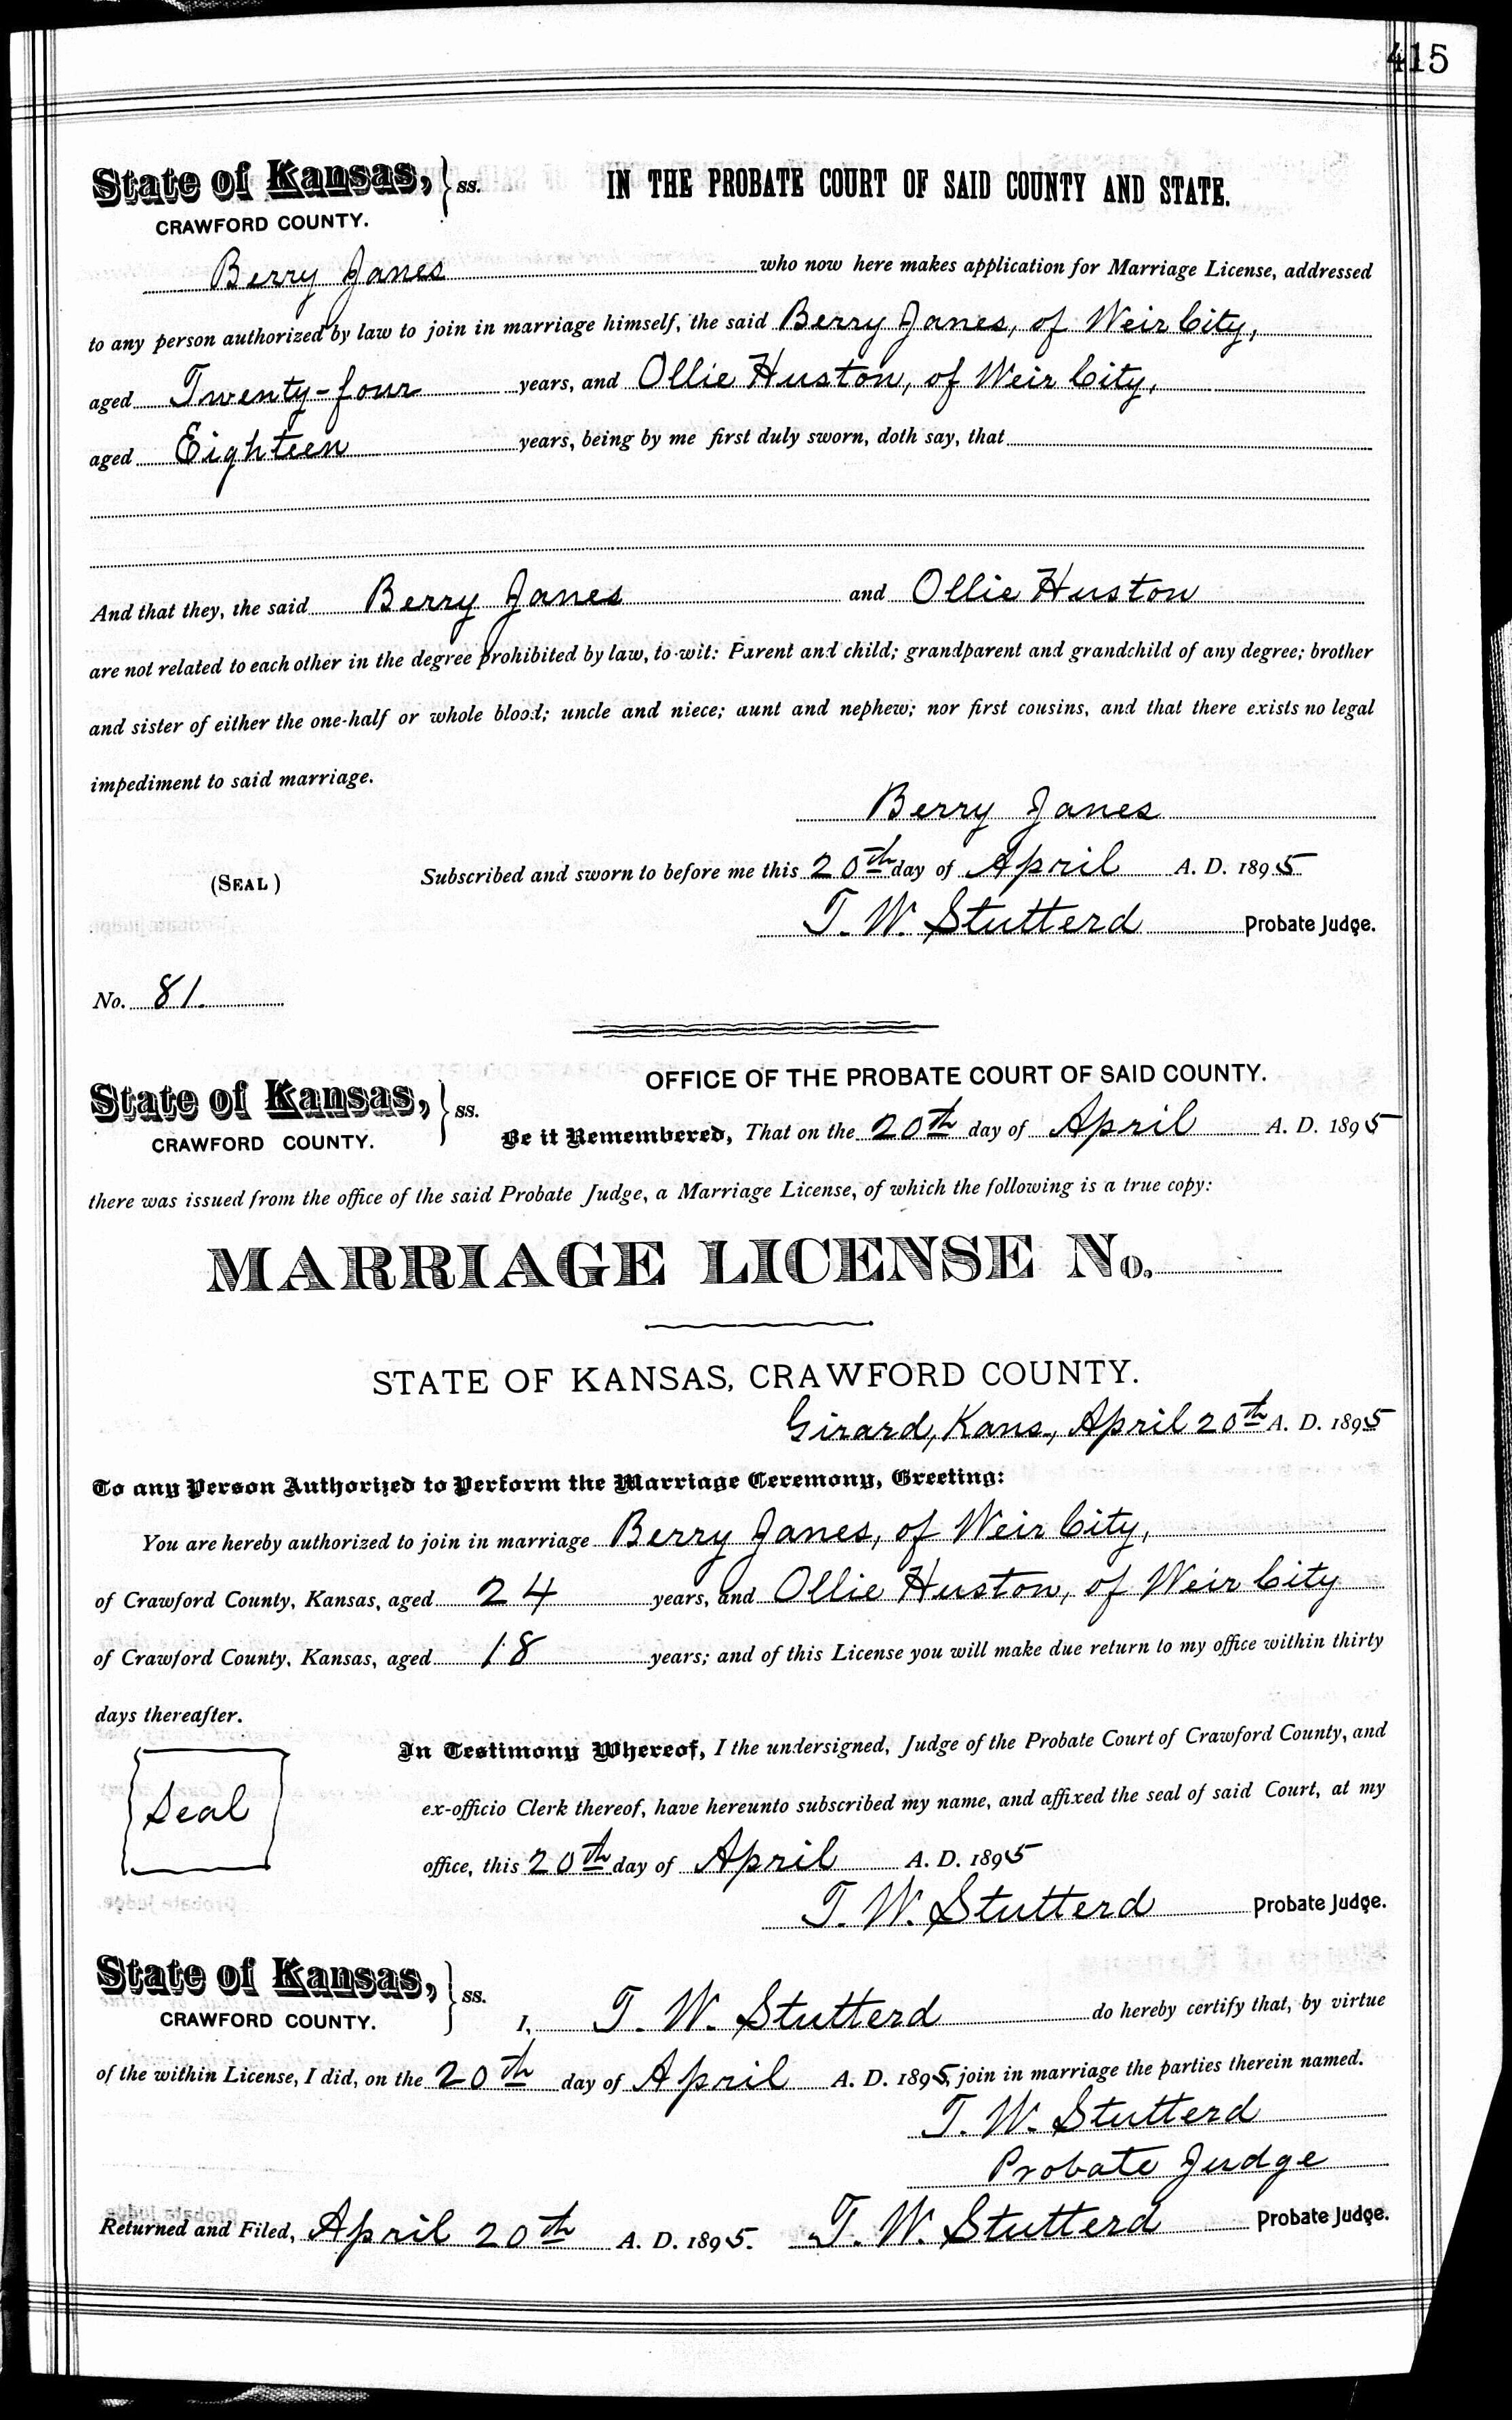 415
State of Kansas, } ss. IN THE PROBATE COURT OF SAID COUNTY AND STATE.
CRAWFORD COUNTY.
Berry Janes who now here makes application for Marriage License, addressed
to any person authorized by law to join in marriage himself, the said Berry Janes, of Weir City,
aged Twenty-four years, and Ollie Huston, of Weir City,
aged Eighteen years, being by me first duly sworn, doth say, that
And that they, the said Berry Janes and Ollie Huston
are not related to each other in the degree prohibited by law, to-wit: Parent and child; grandparent and grandchild of any degree; brother
and sister of either the one-half or whole blood; uncle and niece; aunt and nephew; nor first cousins, and that there exists no legal
impediment to said marriage.
Berry Janes
(SEAL) Subscribed and sworn to before me this 20th day of April A. D. 1895
T. W. Stutterd Probate Judge.
No. 81.
State of Kansas, } ss. OFFICE OF THE PROBATE COURT OF SAID COUNTY.
CRAWFORD COUNTY. Be it Remembered, That on the 20th day of April A. D. 1895
there was issued from the office of the said Probate Judge, a Marriage License, of which the following is a true copy:
MARRIAGE LICENSE No.
STATE OF KANSAS, CRAWFORD COUNTY.
Girard, Kans., April 20th A. D. 1895
To any Person Authorized to Perform the Marriage Ceremony, Greeting:
You are hereby authorized to join in marriage Berry Janes, of Weir City,
of Crawford County, Kansas, aged 24 years, and Ollie Huston, of Weir City
of Crawford County, Kansas, aged 18 years; and of this License you will make due return to my office within thirty
days thereafter.
Seal
In Testimony Whereof, I the undersigned, Judge of the Probate Court of Crawford County, and
ex-officio Clerk thereof, have hereunto subscribed my name, and affixed the seal of said Court, at my
office, this 20th day of April A. D. 1895
T. W. Stutterd Probate Judge.
State of Kansas, } ss.
CRAWFORD COUNTY. I, T. W. Stutterd do hereby certify that, by virtue
of the within License, I did, on the 20th day of April A. D. 1895, join in marriage the parties therein named.
T. W. Stutterd
Probate Judge
Returned and Filed, April 20th A. D. 1895. T. W. Stutterd Probate Judge.